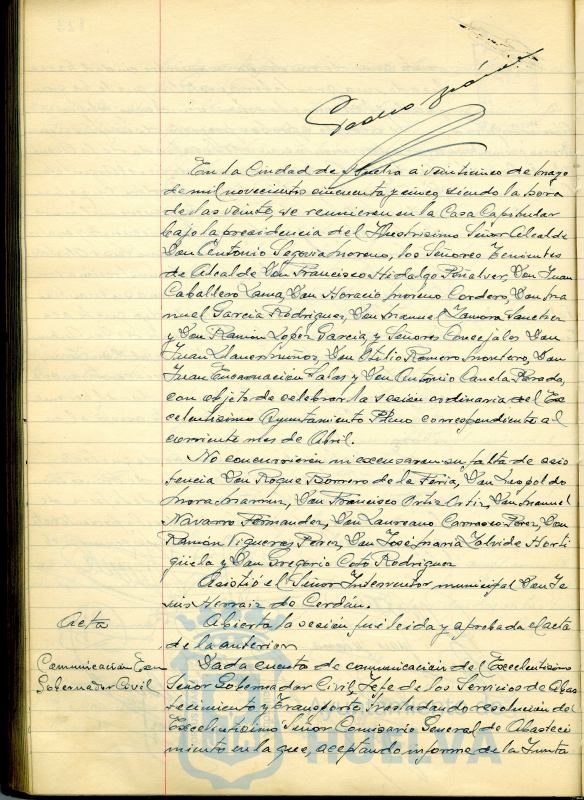 En la Ciudad de Huelva a veinticinco de mayo
de mil novecientos cincuenta y cinco, siendo la hora
de las veinte, se reunieron en la Casa Capitular
bajo la presidencia del Ilustrísimo Señor Alcalde
Don Antonio Segovia Moreno, los Señores Tenientes
de Alcalde Don Francisco Hidalgo Peñalver, Don Juan
Caballero Lama, Don Horacio Moreno Cordero, Don Ma
nuel García Rodríguez, Don Manuel Zamora Sanchez
y Don Ramón López García y Señores Concejales Don
Juan Llanes Muñoz, Don Otilio Romero Montero, Don
Juan Encarnación Salas y Don Antonio Canela Posada,
con objeto de celebrar la sesión ordinaria del Ex
celentísimo Ayuntamiento Pleno correspondiente al
corriente mes de Abril.
No concurrieron ni excusaron su falta de asis
tencia Don Roque Borrero de la Feria, Don Leopoldo
Mora Don Francisco Ortiz Ortiz, Don Manuel
Navarro Fernandez, Don Laureano Carrasco Perez, Don
Ramón Vigueras Perez, Don José María Zalvide Horti
güela y Don Gregorio Coto Rodriguez
Asistió el Señor Interventor municipal Don Je
sus Herraiz de Cerdán.
Acta
Abierta la sesión fué leida y aprobada el acta
de la anterior
Comunicación
Gobernador Civil
Dada cuenta de comunicación del Excelentísimo
Señor Gobernador Civil, Jefe de los Servicios de Abas
tecimiento y Transporte, trasladando resolución del
Excelentísimo Señor Comisario General de Abasteci
miento en la que, aceptando informe de la Junta
HUELVA